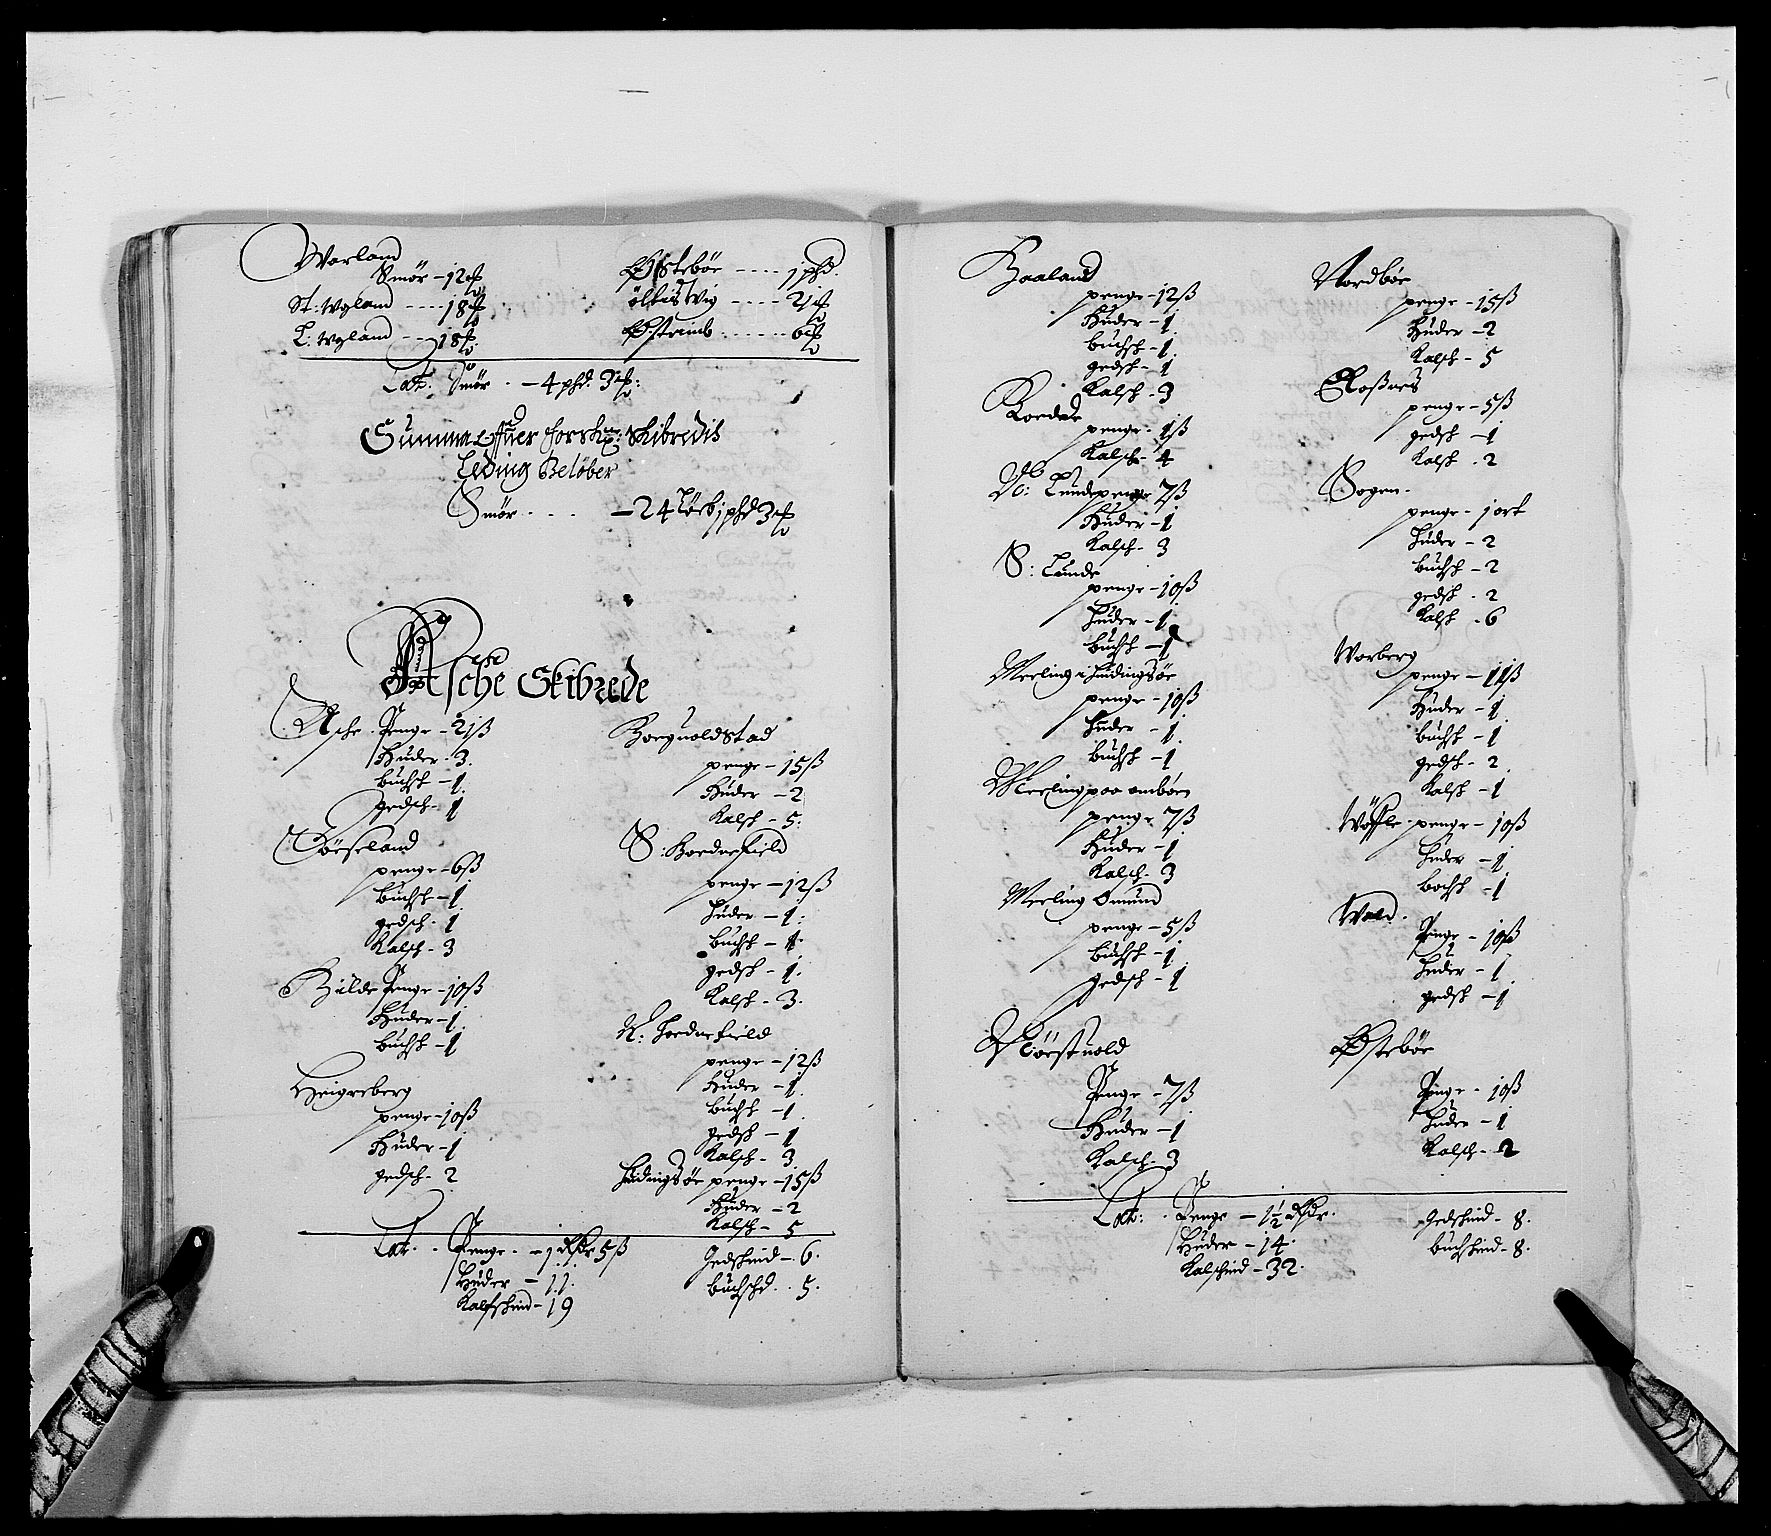 Warland
Smör - 12
St: Wgland ---- 18
L: Wgland --- 18
Østeböe ---- 1 phd.
ölkis Vig ---- 21
Østraub ------ 6
Lat: Smör - 4 phd. 3
Summa Offuer forskr: Skibredis
Leding Belöber
Smör - - - - 24 Löeb 1 phd 3
Asche Skibrede
Asche - Penge - 21 ß
Huder - 3.
Buchsk - 1
gedsch - 1
penge - 6 ß
Buchsk - 1
gedsch - 1
Kalsch - 3
Bilde Penge - 10 ß
Huder - 1
Buchsk - 1
Heigreberg
penge - 10 ß
Huder - 1
gedsch - 2
Boeguoldstad
penge - 15 ß
Huder - 2
Kalsch - 5.
S: Hordnefield
penge - 12 ß
Huder - 1.
Buchsk - 1.
gedsk - 1.
Kalsk - 3.
N: Hordnefield
penge - 12 ß
Huder - 1
Buchsk - 1
gedsk - 1
Kalsch - 3
Hudingsöe penge - 15 ß
Huder - 2
Kalsch - 5
Lat. - Penge - 1 dlr 5 ß
Huder - 11.
Kalfskind - 19
Gedskind - 6.
Buchschd. - 5.
Haaland
penge - 12 ß
Huder - 1
Buchsk - 1.
gedsch - 1
Kalsch - 3
penge - 1 ß
Kalsch - 4
N: Lunde penge 7 ß
Huder - 1
Kalsch - 3
S: Lunde
penge - 10 ß
Huder - 1
Buchsk - 1
Meeling i Hudingsöe
penge - 10 ß
Huder - 1
Buchsk - 1
Meeling paa omböen
penge - 7 ß
Huder - 1
Kalsch - 3
Meeling Omund
penge - 5 ß
Buchsk - 1
gedsch - 1
Penge - 7 ß
Huder - 1
Kalsch - 3
Nordböe
penge - 15 ß
Huder - 2
Kalsch - 5
penge - 5 ß
gedsk - 1
Kalsk - 2
Sogen -
penge - 1 ort
Huder - 2
Buchsk - 2
gedsk - 2
Kalsk - 6
Warberg
penge - 11 ß
Huder - 1
Buchsk - 1
gedsk - 2
Kalsk - 1
penge - 10 ß
Huder - 1
Bochsk - 1
Wold -
Penge - 10 ß
Huder - 1
gedsk - 1
Østeböe
Penge - 10 ß
Huder - 1
Kalsch - 2
Lat: - Penge - 1 ½ dlr.
Huder - 14.
Kalschind - 32.
Gedskind - 8.
Buchskind - 8.